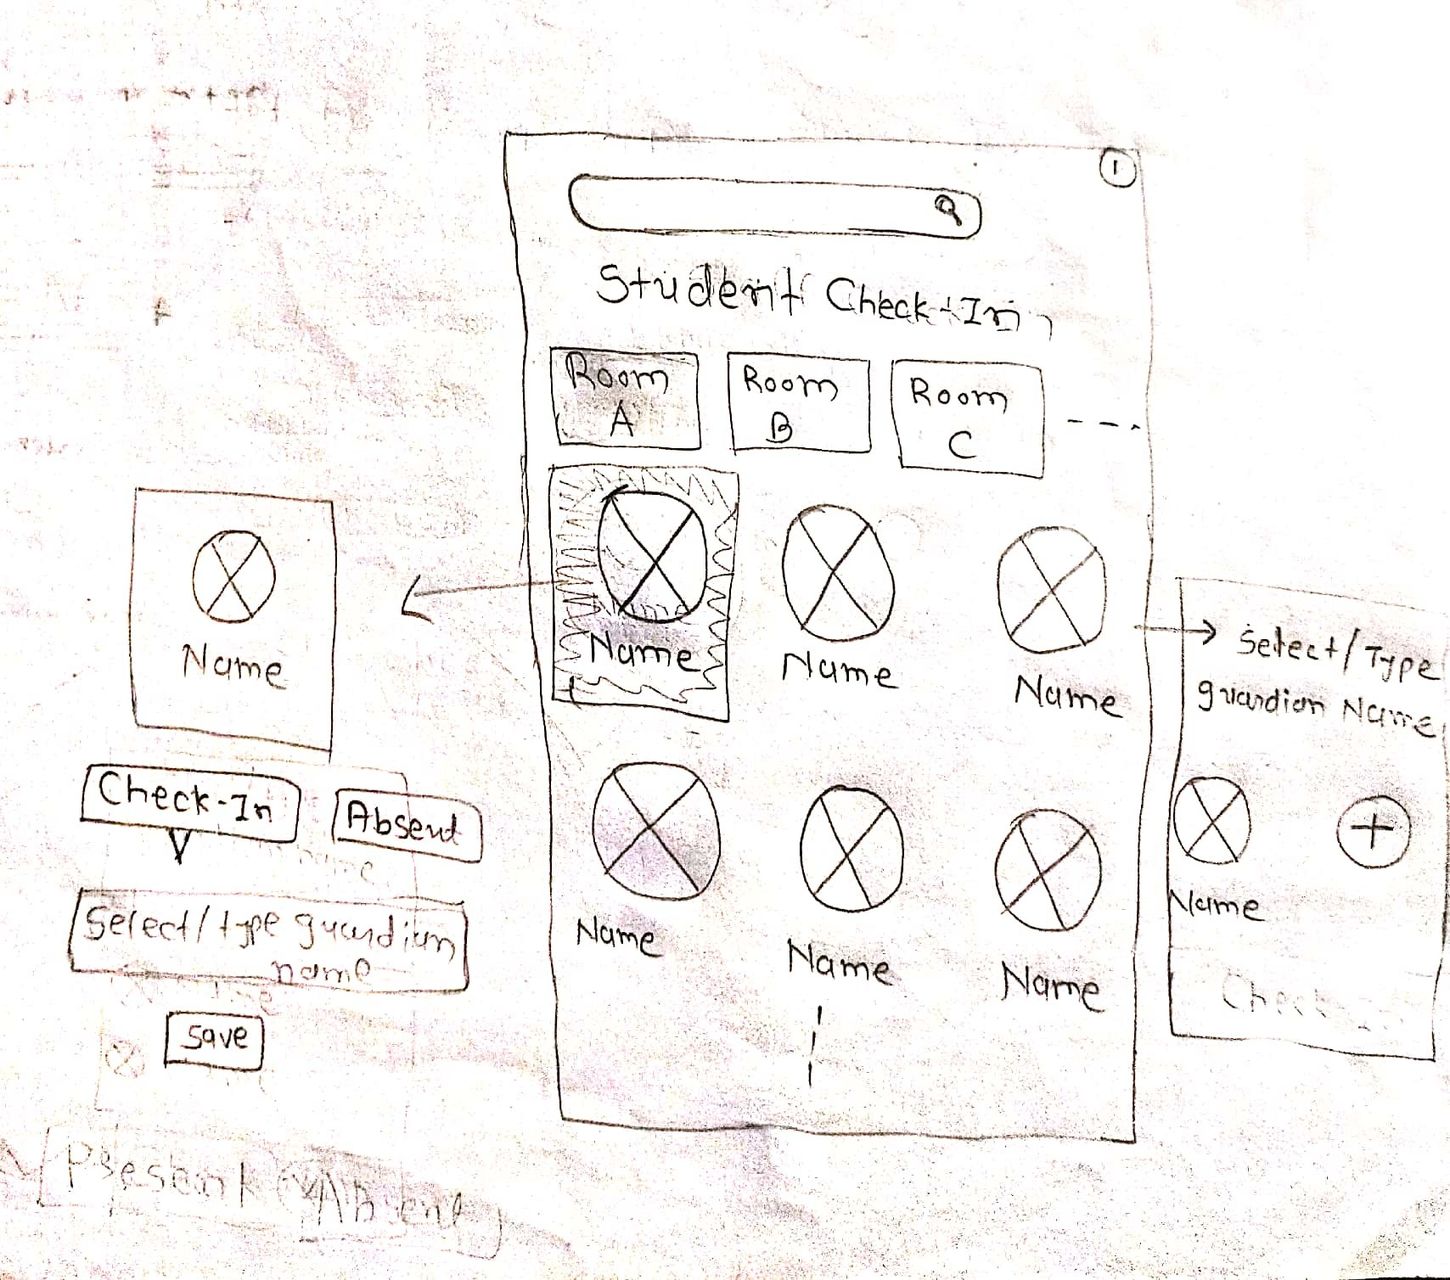 1
Student Check-In
Room
A
Room
B
Room
C
Name
Name
Name
Name
Name
Name
Name
Check-In
Absent
Select/type guardian
name
Save
Select/Type
guardian Name
Name
Check-In
Present
Absent